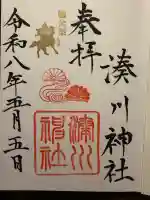 奉拝
湊川神社
湊川
神社
令和八年五月五日